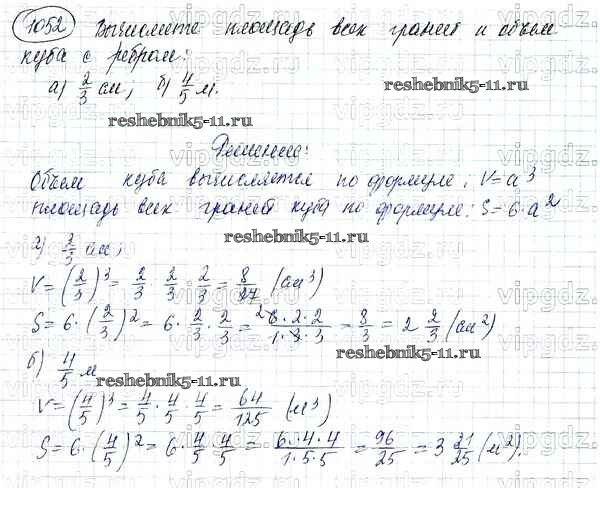 1052 Вычислите площадь всех граней и объем
куба с ребром:
а) 2/3 см; б) 4/5 м.
reshebnik5-11.ru
reshebnik5-11.ru
Решение:
Объем куба вычисляется по формуле: V=a³
площадь всех граней куба по формуле: S=6·a²
reshebnik5-11.ru
а) 2/3 см;
V=(2/3)³= 2/3 · 2/3 · 2/3 = 8/27 (см³)
S=6·(2/3)²=6·2/3·2/3= 6·2·2/1·3·3 = 8/3 = 2 2/3 (см²)
reshebnik5-11.ru
б) 4/5 м
reshebnik5-11.ru
V=(4/5)³=4/5·4/5·4/5=64/125 (м³)
S=6·(4/5)²=6·4/5·4/5= 6·4·4/1·5·5 = 96/25 = 3 21/25 (м²).
vipgdz.com